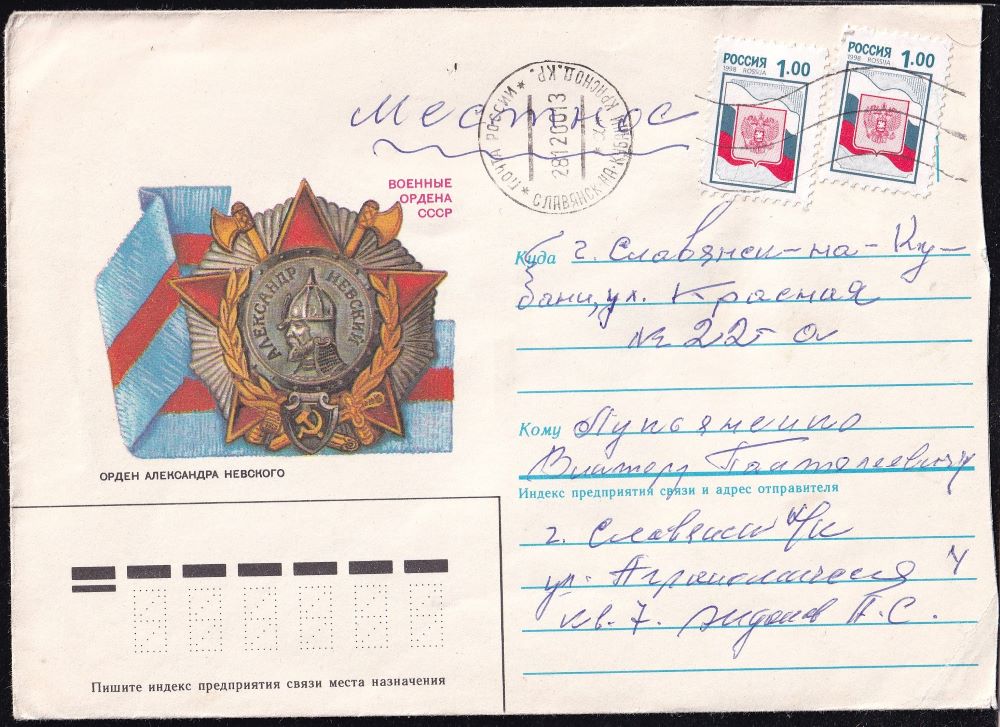 РОССИЯ 1.00
1998 ROSSIJA
РОССИЯ 1.00
1998 ROSSIJA
Местное
ПОЧТА РОССИИ * КРАСНОД. КР. *
2812000 13
СЛАВЯНСК-НА-КУБАНИ
ВОЕННЫЕ
ОРДЕНА
СССР
АЛЕКСАНДР НЕВСКИЙ
ОРДЕН АЛЕКСАНДРА НЕВСКОГО
Куда г. Славянск-на-Ку-
бани, ул. Красная
№ 22
Кому
Виктору Пантелеевичу
Индекс предприятия связи и адрес отправителя
г. Славянск н/к
ул. Агрономическая 4
кв. 7. П. С.
Пишите индекс предприятия связи места назначения